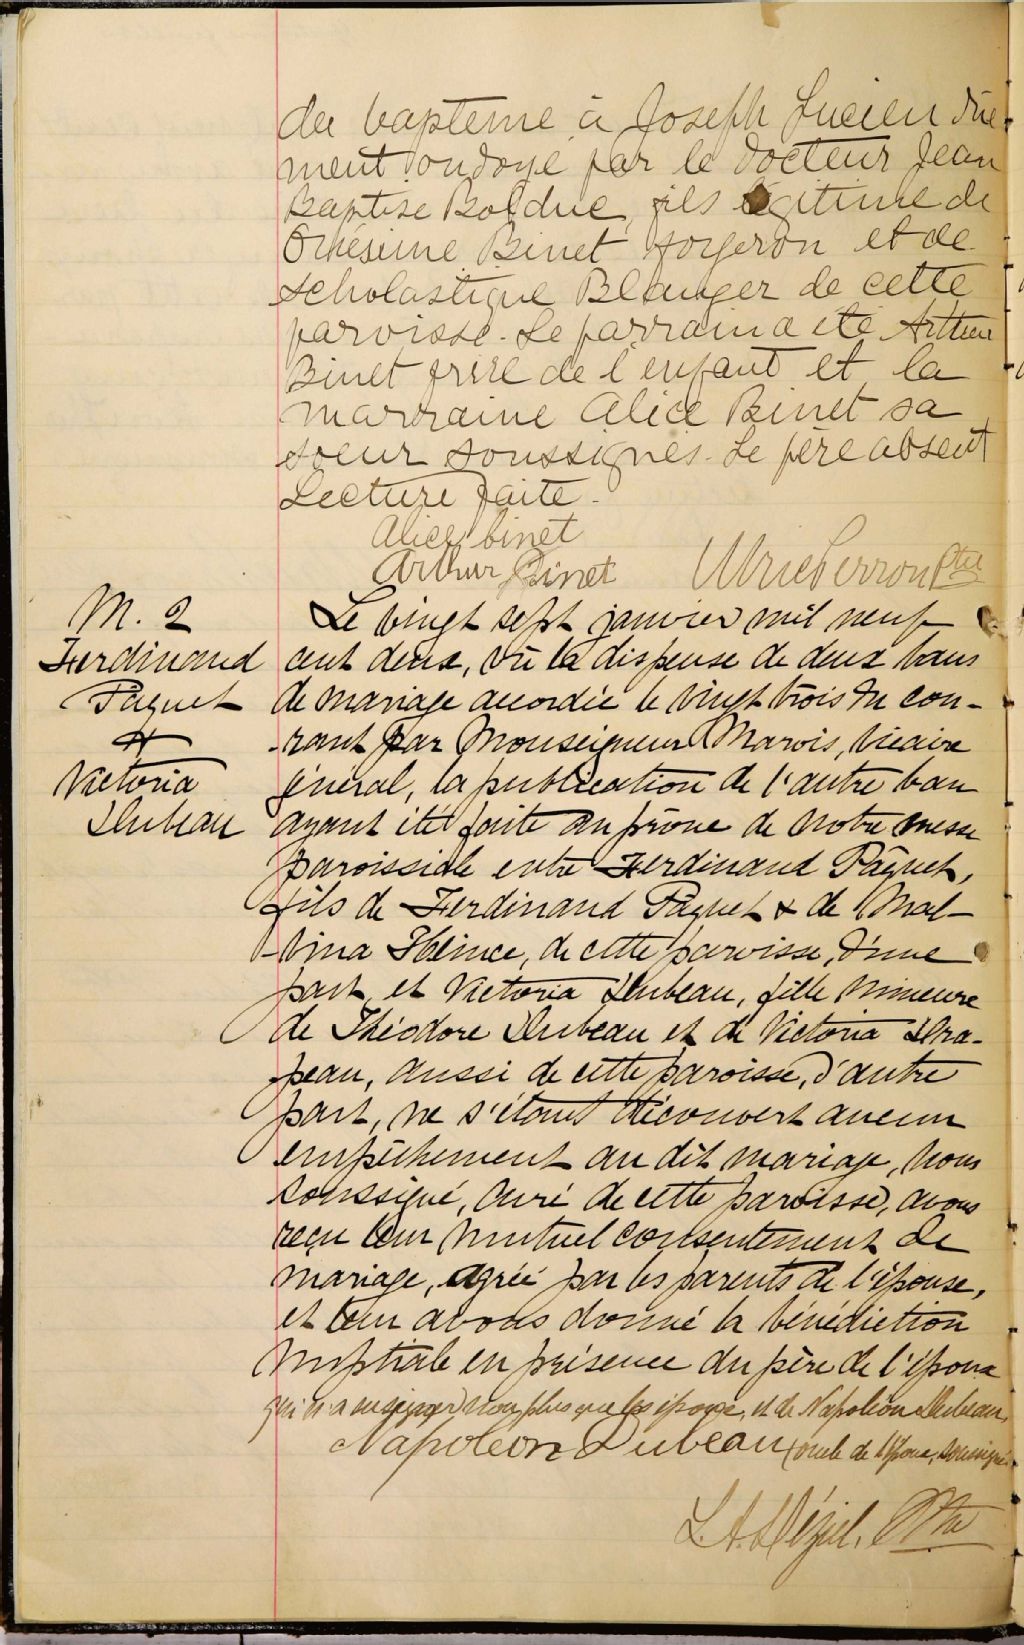 du bapteme à Joseph Lucien dûe-
ment ondoyé par le docteur Jean
Baptise Bolduc, fils légitime de
Onésime Binet forgeron et de
Scholastique Blanger de cette
paroisse. Le parrain a été Arthur
Binet frère de l'enfant et la
marraine Alice Binet sa
soeur soussignés. Le père absent
Lecture faite.
Alice binet
Arthur Binet Ulric Perron Ptre
M. 2
Ferdinand
Pâquet
&
Victoria
Dubeau
Le vingt sept janvier mil neuf
cent deux, vû la dispense de deux bans
de mariage accordée le vingt trois du cou-
-rant par Monseigneur Marois, vicaire
général, la publication de l'autre ban
ayant été faite au prône de notre messe
paroissiale entre Ferdinand Pâquet,
fils de Ferdinand Pâquet & de Mal-
-vina, de cette paroisse, d'une
part, et Victoria Dubeau, fille mineure
de Théodore Dubeau et de Victoria Dra-
peau, aussi de cette paroisse, d'autre
part, ne s'étant découvert aucun
empêchement au dit mariage, nous
soussigné, curé de cette paroisse, avons
reçu leur mutuel consentement de
mariage, agréé par les parents de l'épouse,
et leur avons donné la bénédiction
nuptiale en présence du père de l'époux
qui n'a su signer non plus que les époux, et de Napoléon Dubeau,
Napoléon Dubeau oncle de l'épouse, soussigné.
L. A. Déziel, Ptre